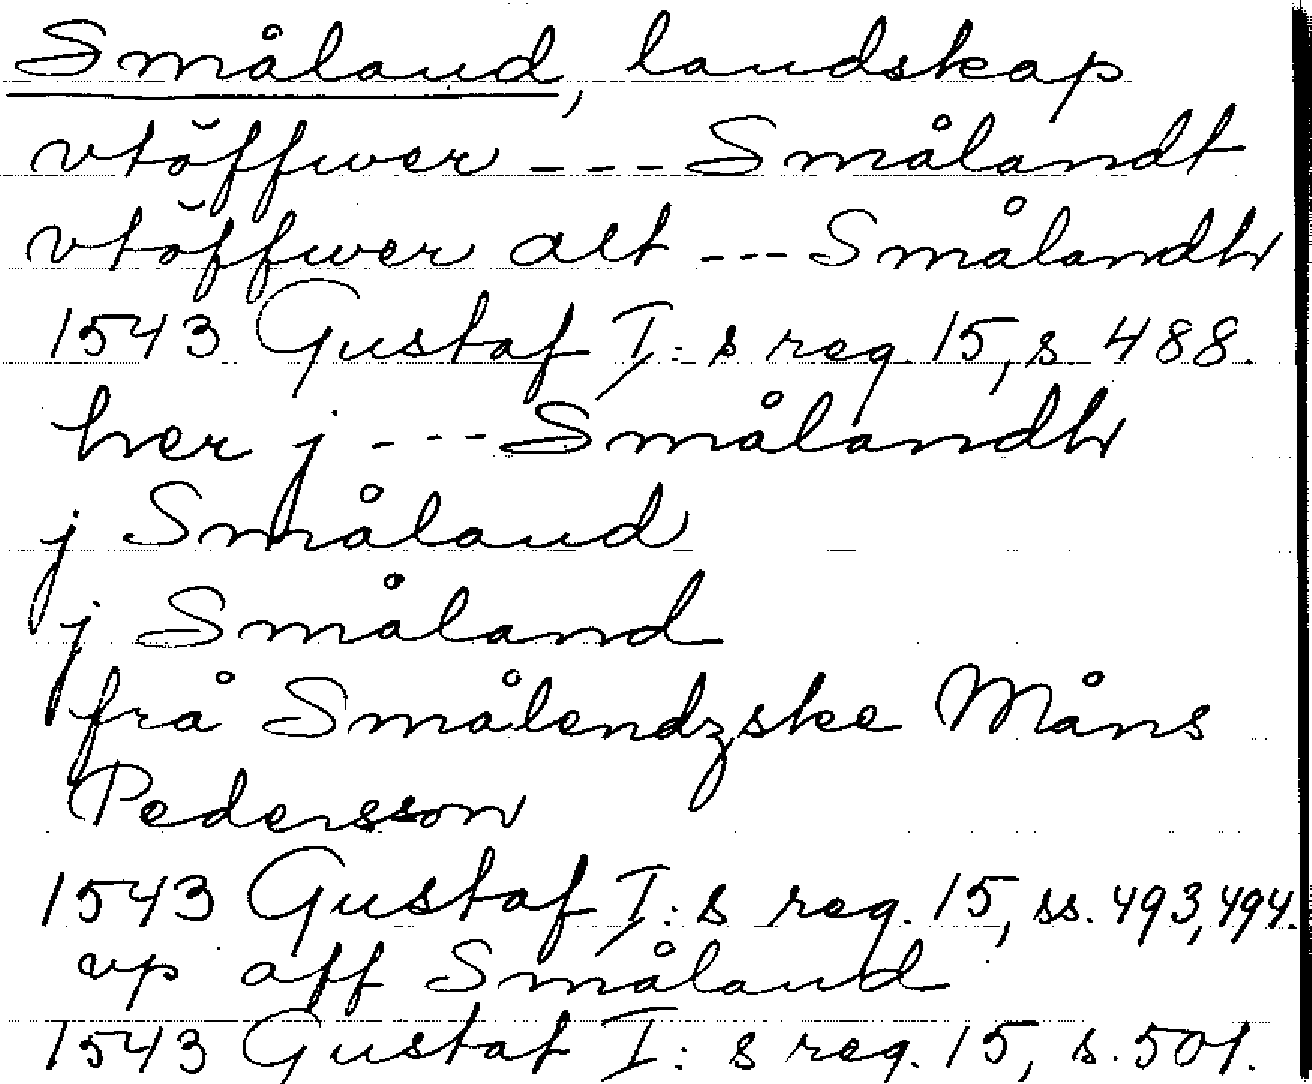 Småland, landskap
vtöffwer --- Smålandt
vtöffwer alt --- Smålandh
1543 Gustaf I:s reg. 15, s. 488.
her j --- Smålandh
j Småland
j Småland
frå Smålendzske Måns
Pedersson
1543 Gustaf I:s reg. 15, ss. 493, 494.
vp aff Småland
1543 Gustaf I:s reg. 15, s. 501.